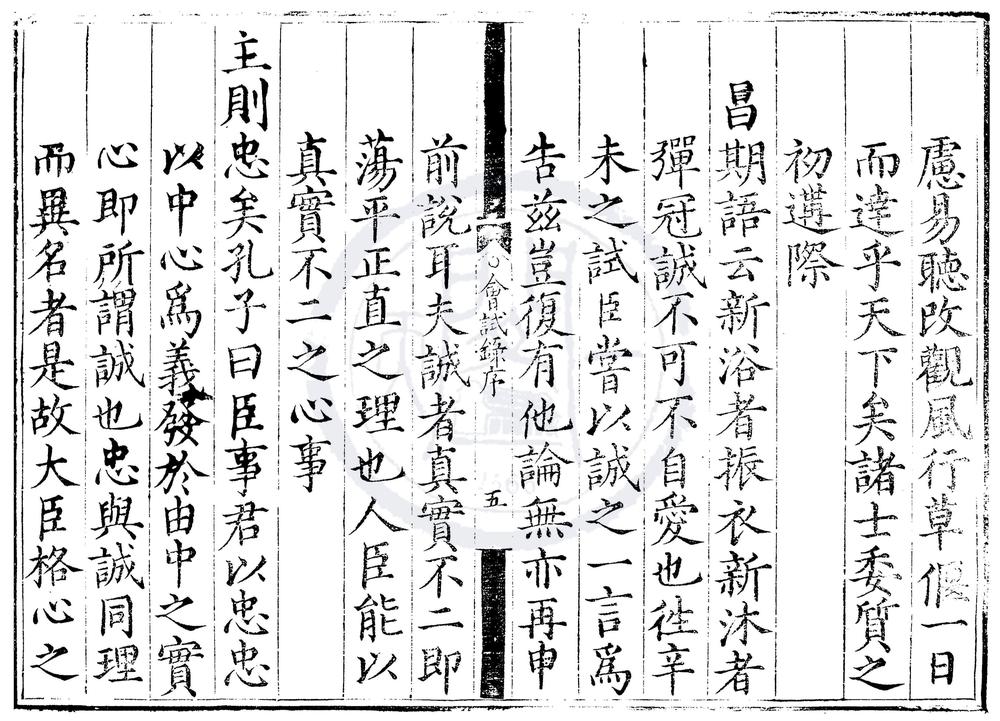 慮易聽改觀風行草偃一日
而達乎天下矣諸士委質之
初遘際
昌期語云新浴者振衣新沐者
彈冠誠不可不自愛也徃辛
未之試臣嘗以誠之一言爲
告兹豈復有他論無亦再申
會試錄序
五
前說耳夫誠者真實不二即
蕩平正直之理也人臣能以
真實不二之心事
主則忠矣孔子曰臣事君以忠忠
以中心爲義發於由中之實
心即所謂誠也忠與誠同理
而異名者是故大臣格心之